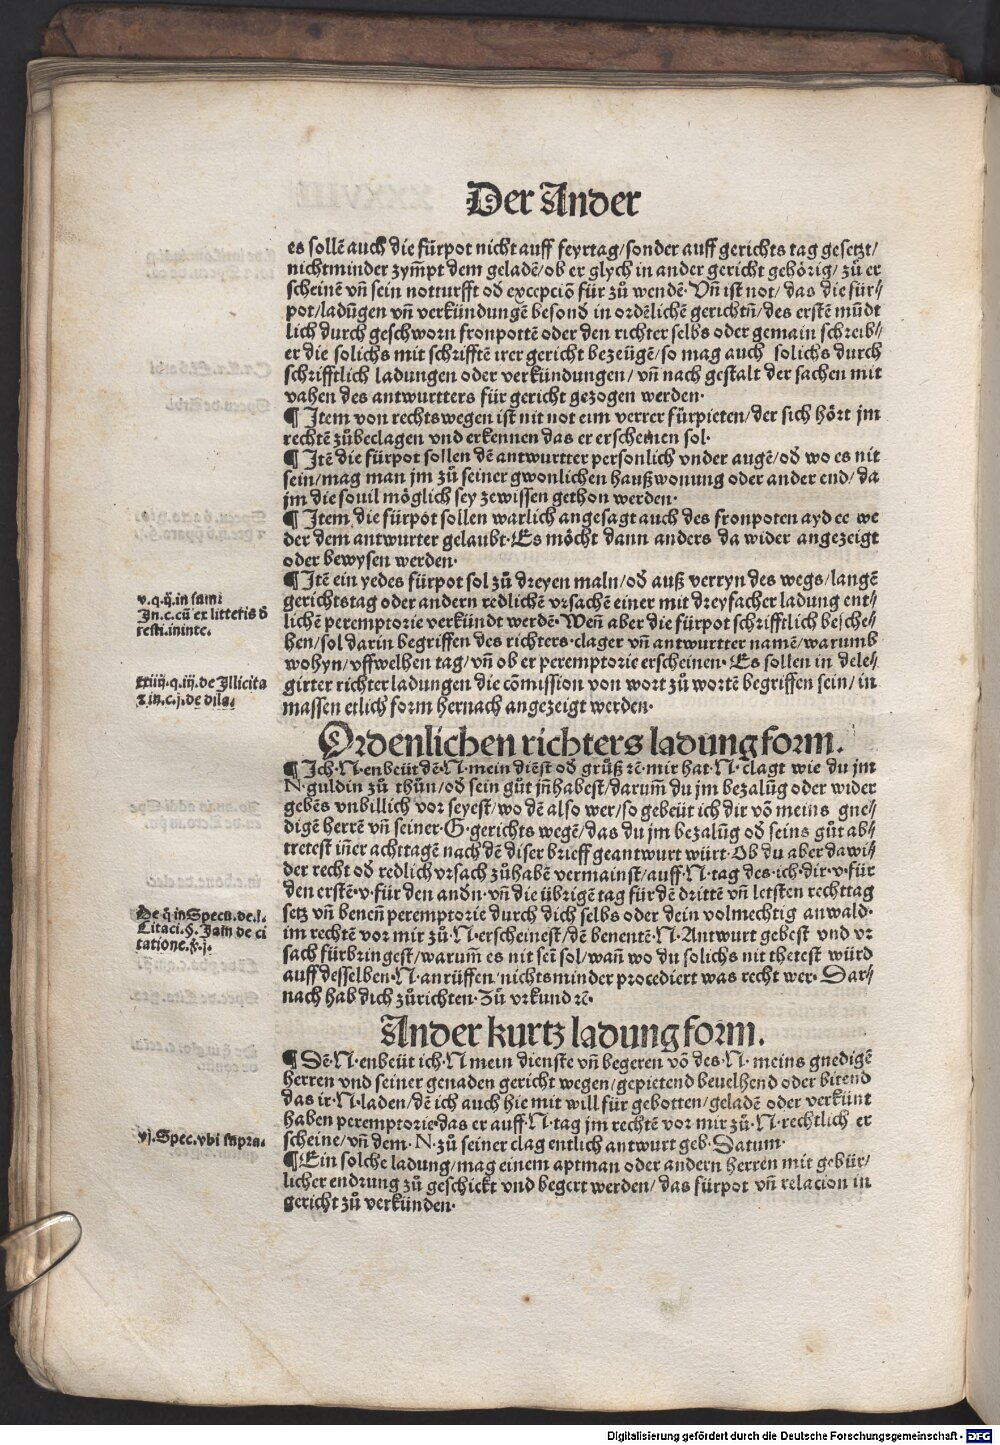 Der Ander
es sollē auch die fürpot nicht auff feyrtag/sonder auff gerichts tag gesetzt/
nichtminder zympt dem geladē/ob er glych in ander gericht gehörig/zů er
scheinē vn̄ sein notturfft od excepciō für zů wendē· Vn̄ ist not/das die für⸗
pot/ladūgen vn̄ verkündungē besond in ordēlichē gerichtn̄/des erstē mūdt
lich durch geschworn fronpottē oder den richter selbs oder gemain schreib⸗
er die solichs mit schrifftē irer gericht bezeügē/so mag auch solichs durch
schrifftlich ladungen oder verkündungen/vn̄ nach gestalt der sachen mit
vahen des antwurtters für gericht gezogen werden·
¶ Item von rechtswegen ist nit not eim verrer fürpieten/der sich hört jm
rechtē zůbeclagen vnd erkennen das er erscheinen sol·
¶ Itē die fürpot sollen dē antwurtter personlich vnder augē/od wo es nit
sein/mag man jm zů seiner gwonlichen haußwonung oder ander end/da
jm die souil möglich sey zewissen gethon werden·
¶ Item die fürpot sollen warlich angesagt auch des fronpoten ayd ee we
der dem antwurter gelaubt· Es möcht dann anders da wider angezeigt
oder bewysen werden·
¶ Itē ein yedes fürpot sol zů dreyen maln/od auß verryn des wegs/langē
gerichtstag oder andern redlichē vrsachē einer mit dreyfacher ladung ent⸗
lichē peremptorie verkündt werdē· Wen̄ aber die fürpot schrifftlich besche⸗
hen/sol darin begriffen des richters·clager vn̄ antwurtter namē/warumb
wohyn/vffwelhen tag/vn̄ ob er peremptorie erscheinen· Es sollen in dele⸗
girter richter ladungen die cōmission von wort zů wortē begriffen sein/in
massen etlich form hernach angezeigt werden·
v.q.q̄.in sum̄
In.c.cū ex litteris d̄
resti.ininte.
xxiiij.q.iij.de Illicita
⁊ in.c.j.de dila.
Ordenlichen richters ladung form.
¶ Ich·N·enbeüt dē·N·mein diēst od grůß ꝛc̄·mir hat·N·clagt wie du jm
N·guldin zů thůn/od sein gůt jn̄habest/darum̄ du jm bezalūg oder wider
gebēs vnbillich vor seyest/wo dē also wer/so gebeüt ich dir vō meins gne⸗
digē herrē vn̄ seiner·G·gerichts wegē/das du jm bezalūg od seins gůt ab⸗
tretest in̄er achttagē nach dē diser brieff geantwurt würt·Ob du aber dawi⸗
der recht od redlich vrsach zůhabē vermainst/auff·N·tag des·ich·dir·v·für
den erstē·v·für den andn·vn̄ die übrigē tag für dē drittē vn̄ letsten rechttag
setz vn̄ benen̄ peremptorie durch dich selbs oder dein volmechtig anwald·
im rechtē vor mir zů·N·erscheinest/dē benentē·N·Antwurt gebest vnd vr
sach fürbringest/warum̄ es nit sei sol/wan̄ wo du solichs nit thetest würd
auff desselben·N·anrüffen nichtsminder procediert was recht wer· Dar⸗
nach hab dich zůrichten· Zů vrkund ꝛc̄·
De q̄ in Specu.de.l.
Citaci.§.Jam de ci
tatione.§.j.
Ander kurtz ladung form.
¶ Dē·N·enbeüt ich·N mein dienste vn̄ begeren vō des·N·meins gnedigē
herren vnd seiner genaden gericht wegen/gepietend beuelhend oder bitend
das ir·N·laden/dē ich auch hie mit will für gebotten/geladē oder verkünt
haben peremptorie das er auff·N·tag jm rechtē vor mir zů·N·rechtlich er
scheine/vn̄ dem·N·zů seiner clag entlich antwurt geb· Datum·
¶ Ein solche ladung/mag einem aptman oder andern herren mit gebür⸗
licher endrung zů geschickt vnd begert werden/das fürpot vn̄ relacion in
gericht zů verkünden·
vj.Spec.vbi supra.
Digitalisierung gefördert durch die Deutsche Forschungsgemeinschaft - DFG